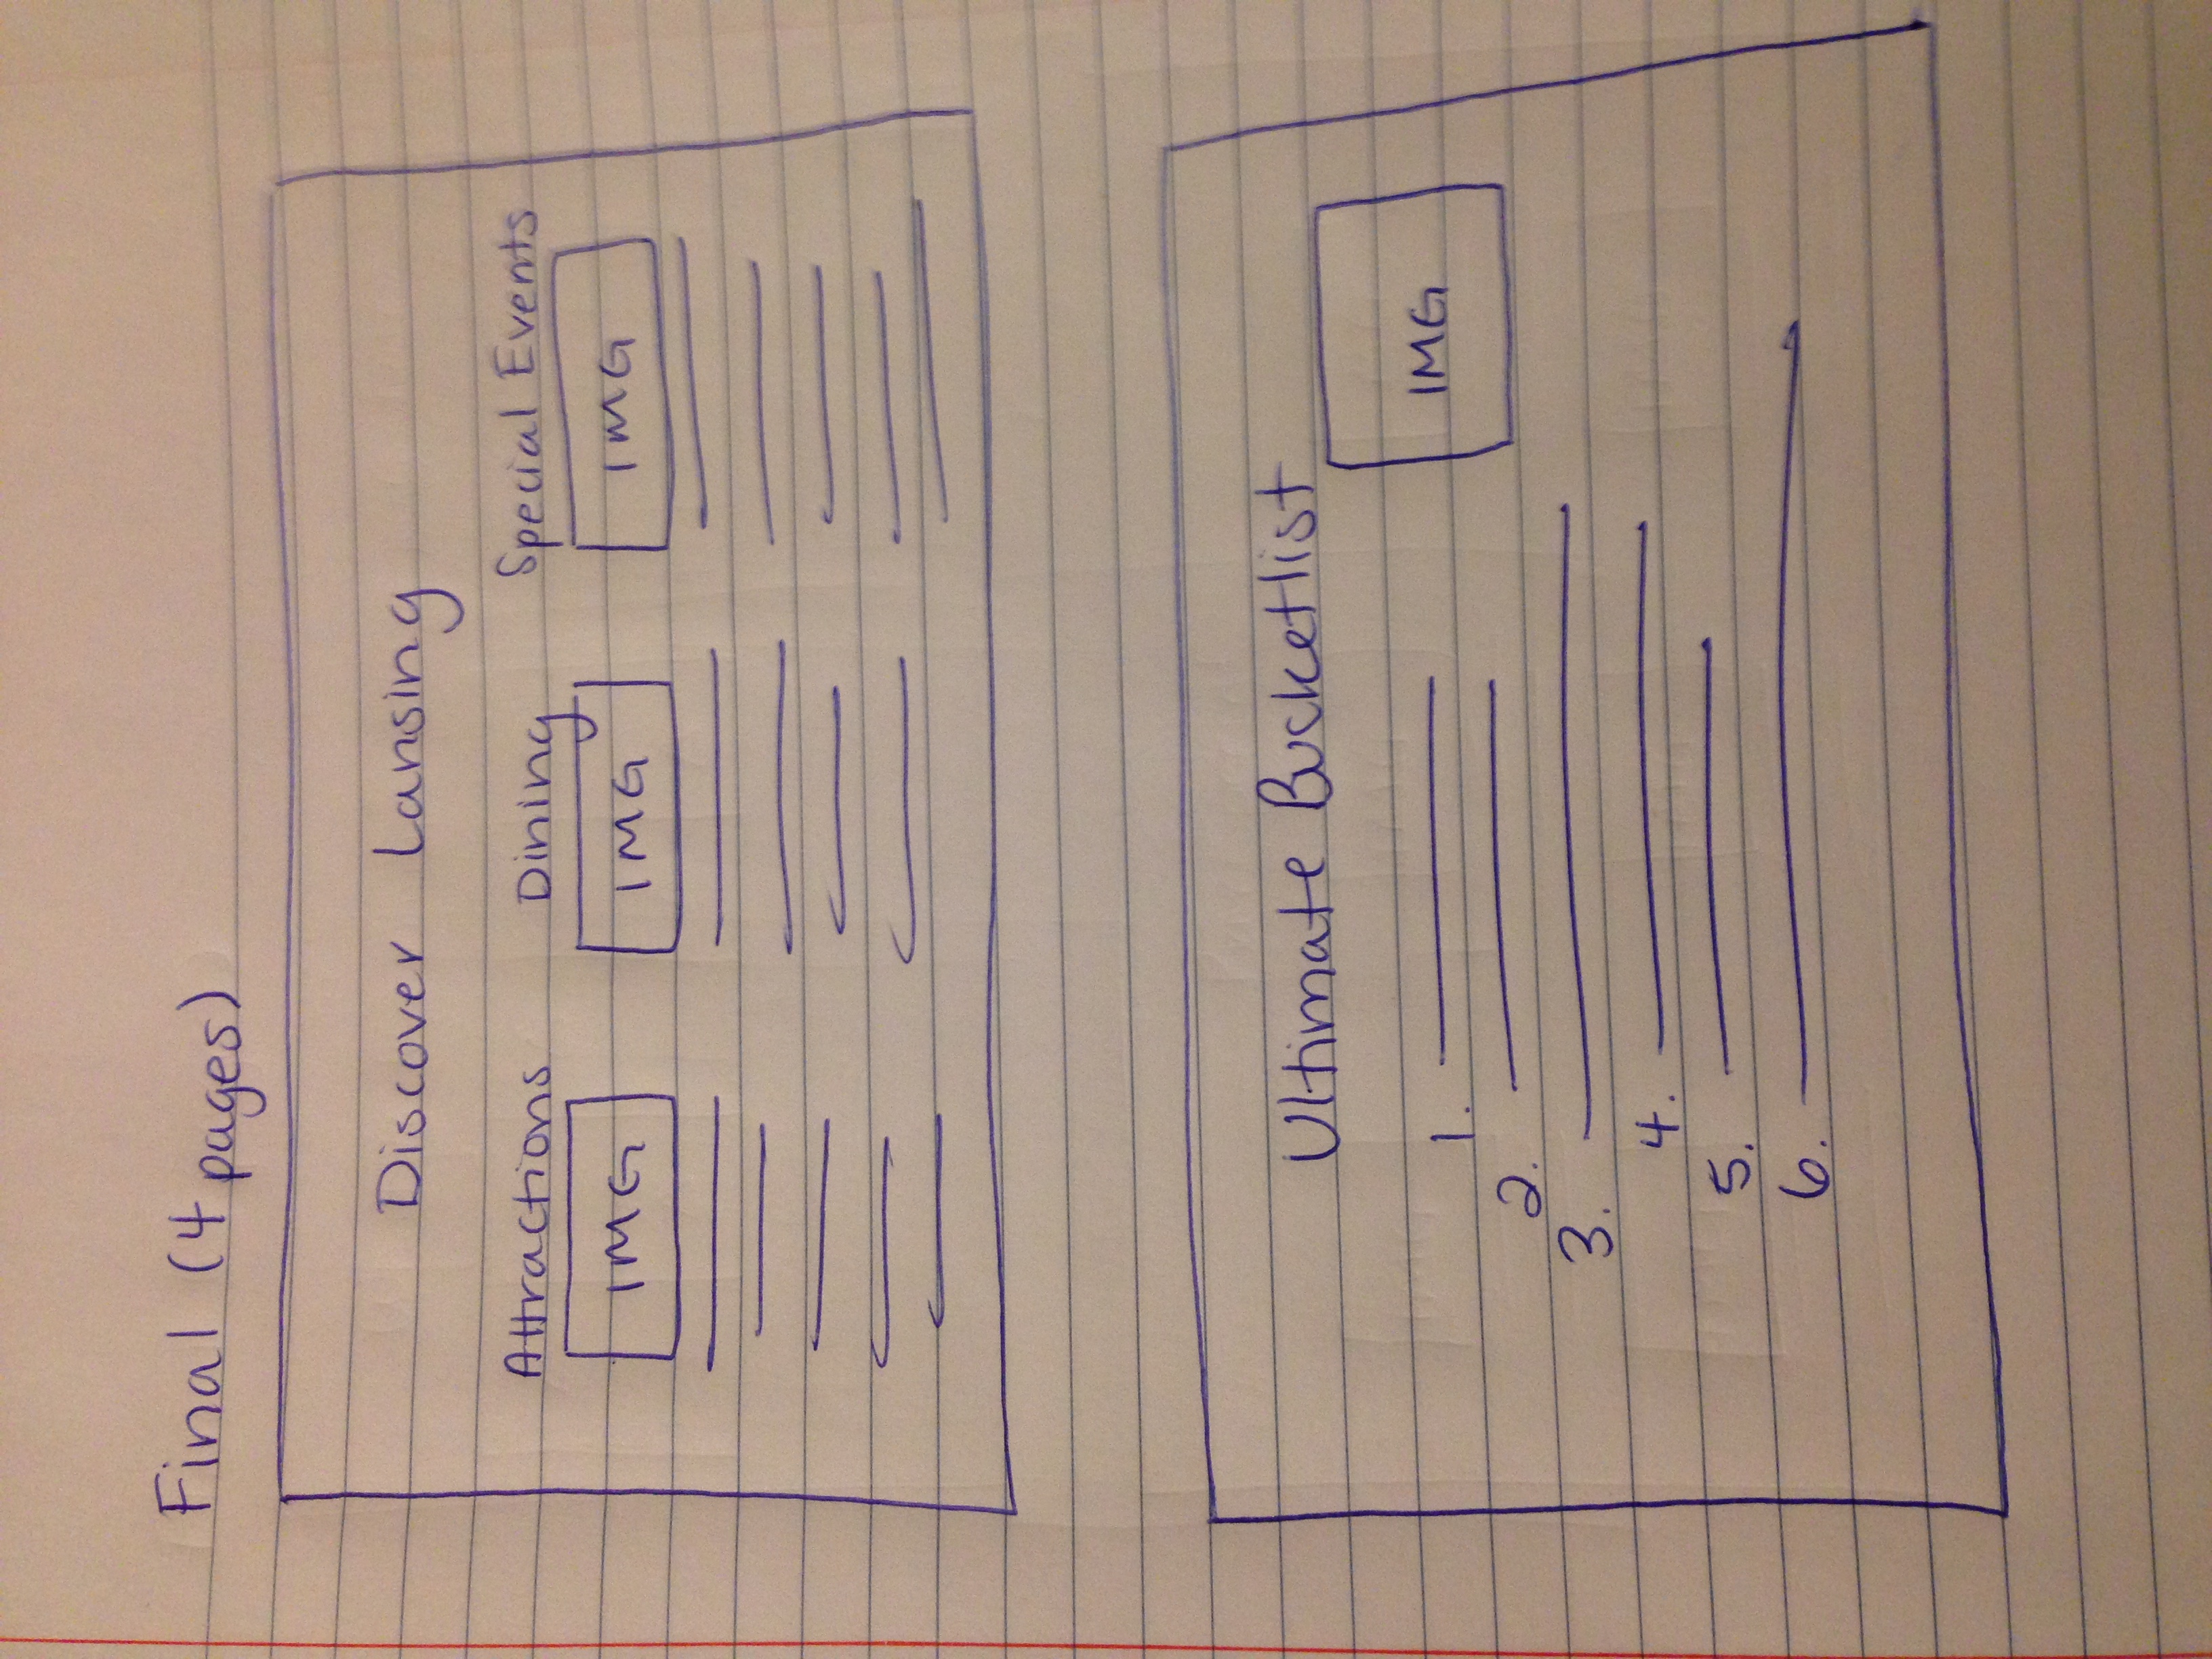 Final (4 pages)
Discover Lansing
Attractions Dining Special Events
IMG IMG IMG
Ultimate Bucketlist
IMG
1.
2.
3.
4.
5.
6.